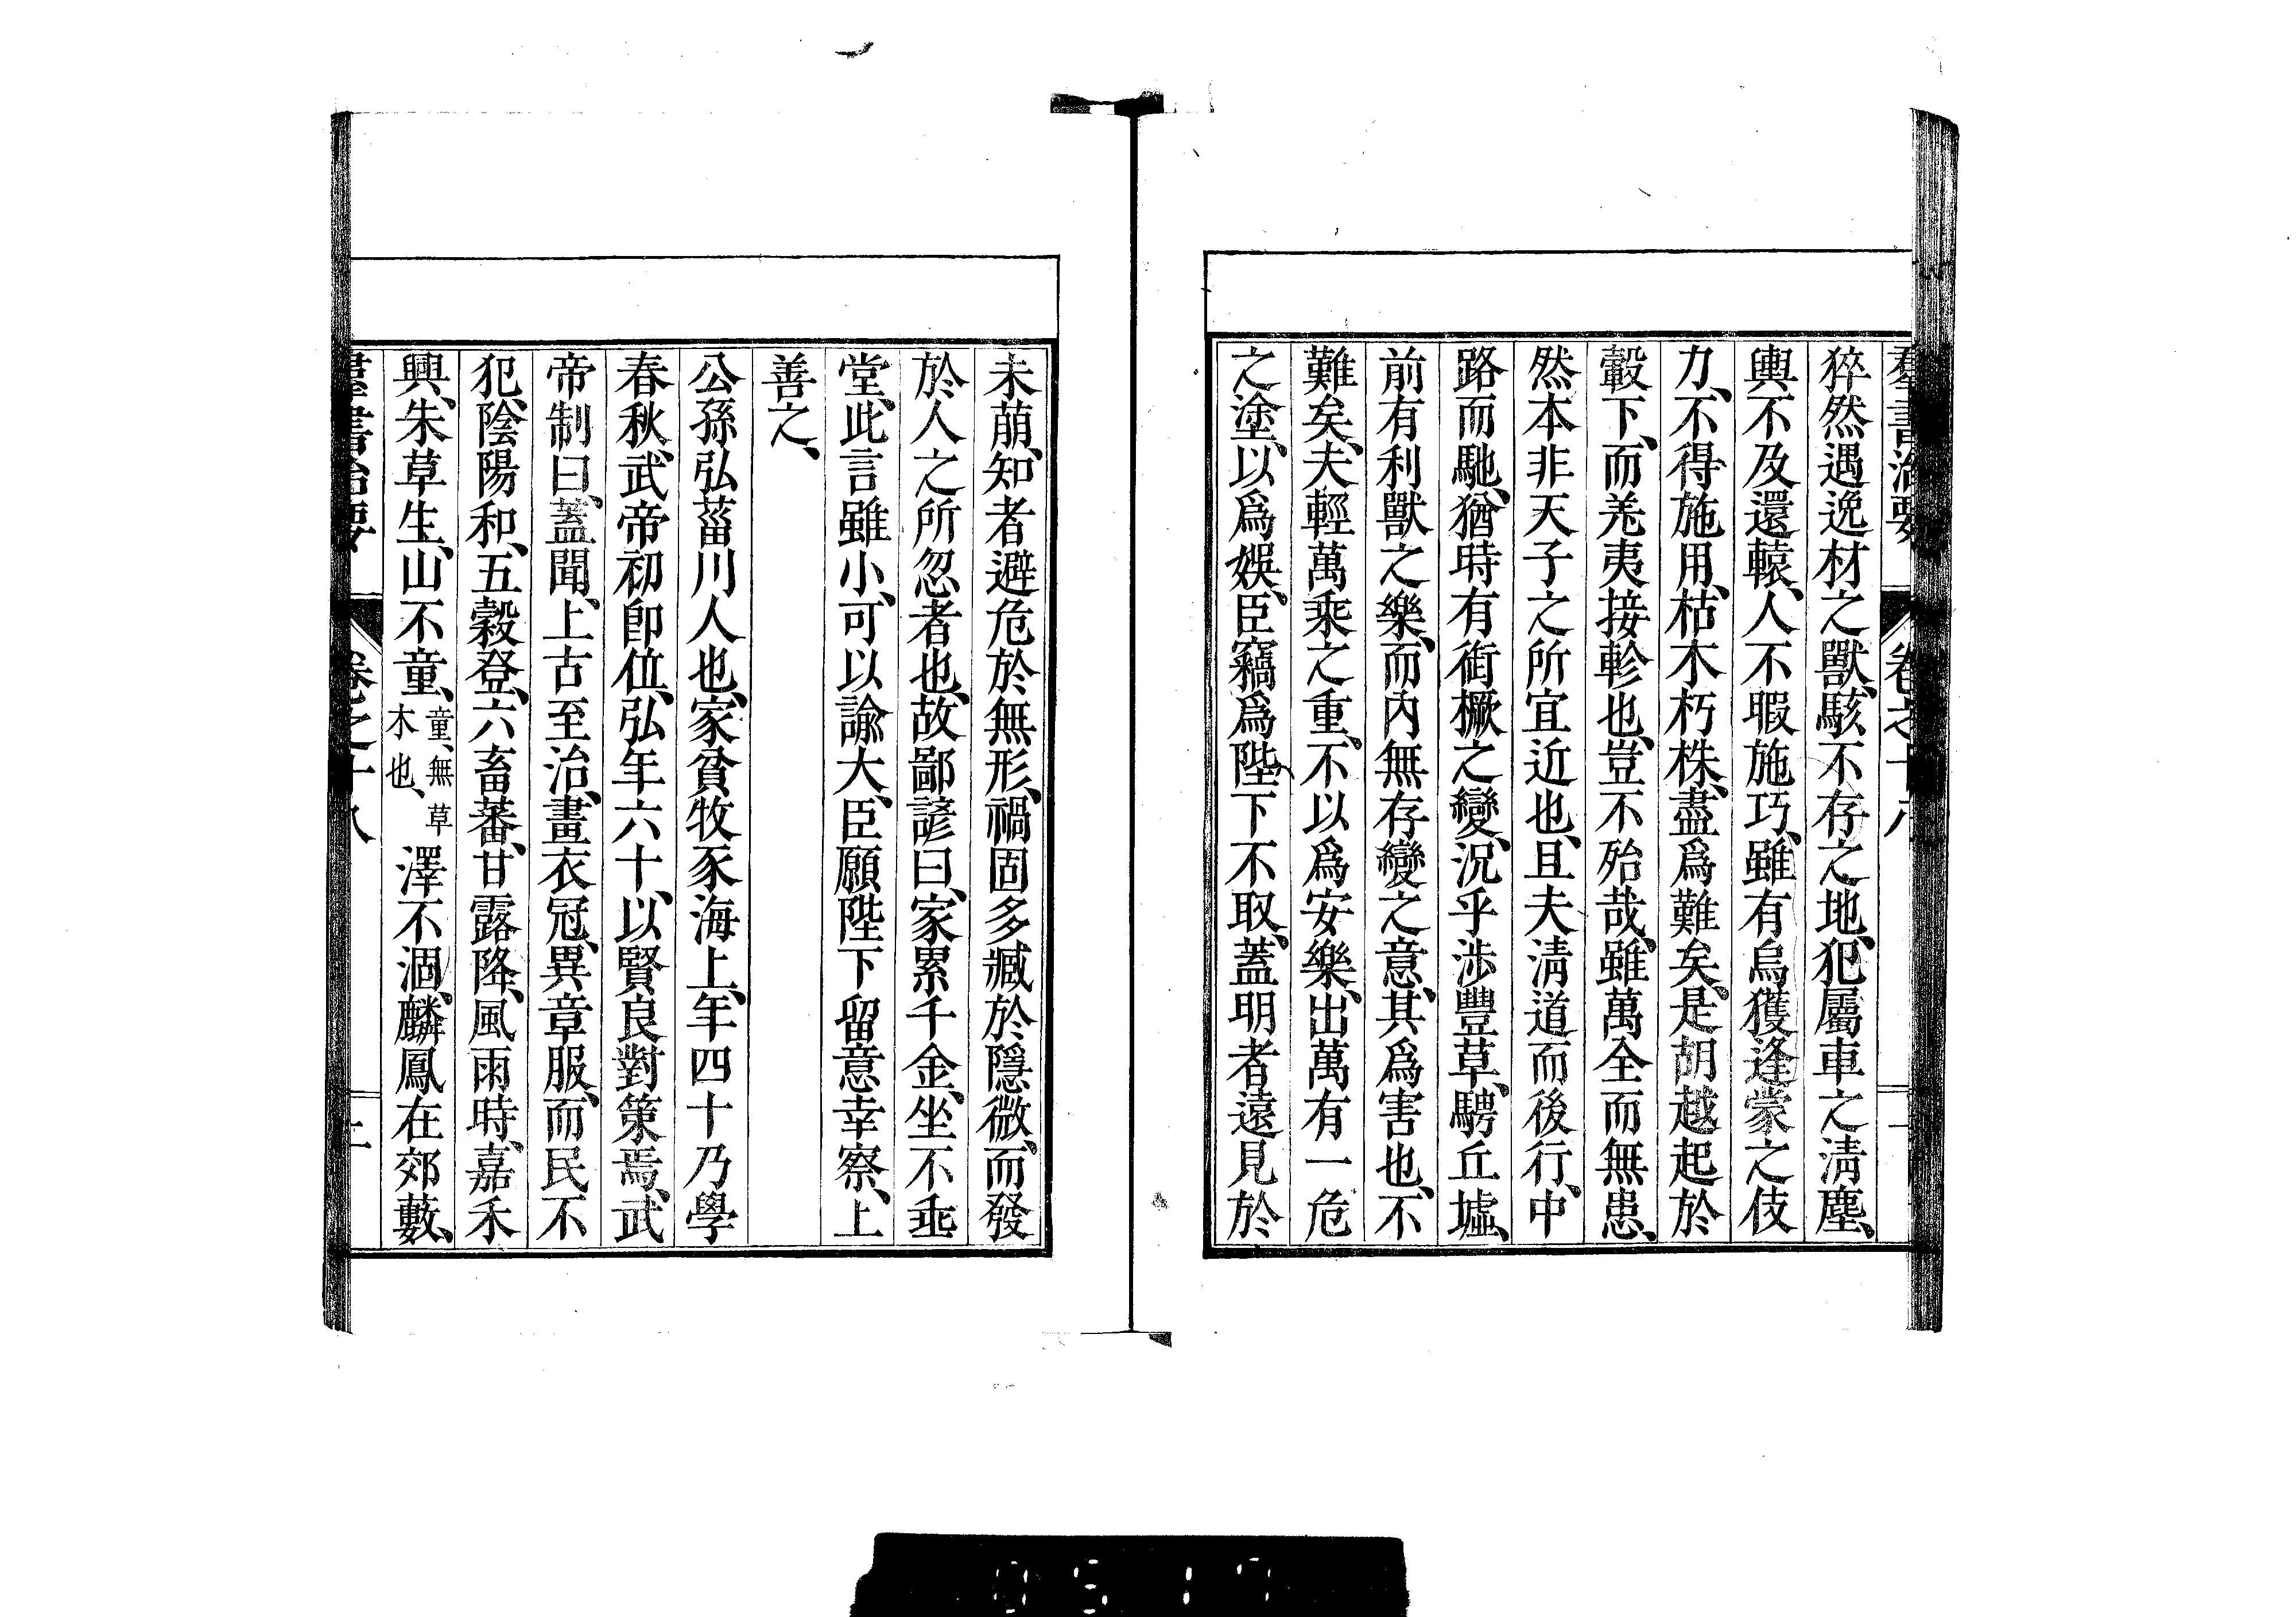 羣書治要 卷之十八
猝然遇逸材之獸、駭不存之地、犯屬車之淸塵、
輿不及還轅、人不暇施巧、雖有烏獲逢蒙之伎
力、不得施用、枯木朽株、盡爲難矣、是胡越起於
轂下、而羌夷接軫也、豈不殆哉、雖萬全而無患、
然本非天子之所宜近也、且夫淸道而後行、中
路而馳、猶時有銜橛之變、況乎涉豐草、騁丘墟、
前有利獸之樂、而內無存變之意、其爲害也、不
難矣、夫輕萬乘之重、不以爲安樂、出萬有一危
之塗、以爲娛、臣竊爲陛下不取、蓋明者遠見於
未萠、知者避危於無形、禍固多臧於隱微、而發
於人之所忽者也、故鄙諺曰、家累千金、坐不垂
堂、此言雖小、可以諭大、臣願陛下留意幸察、上
善之、
公孫弘菑川人也、家貧牧豕海上、年四十乃學
春秋、武帝初卽位、弘年六十、以賢良對策焉、武
帝制曰、蓋聞、上古至治、畫衣冠、異章服、而民不
犯、陰陽和、五穀登、六畜蕃、甘露降、風雨時、嘉禾
興、朱草生、山不童、童、無草木也、澤不涸、麟鳳在郊藪、
羣書治要 卷之十八